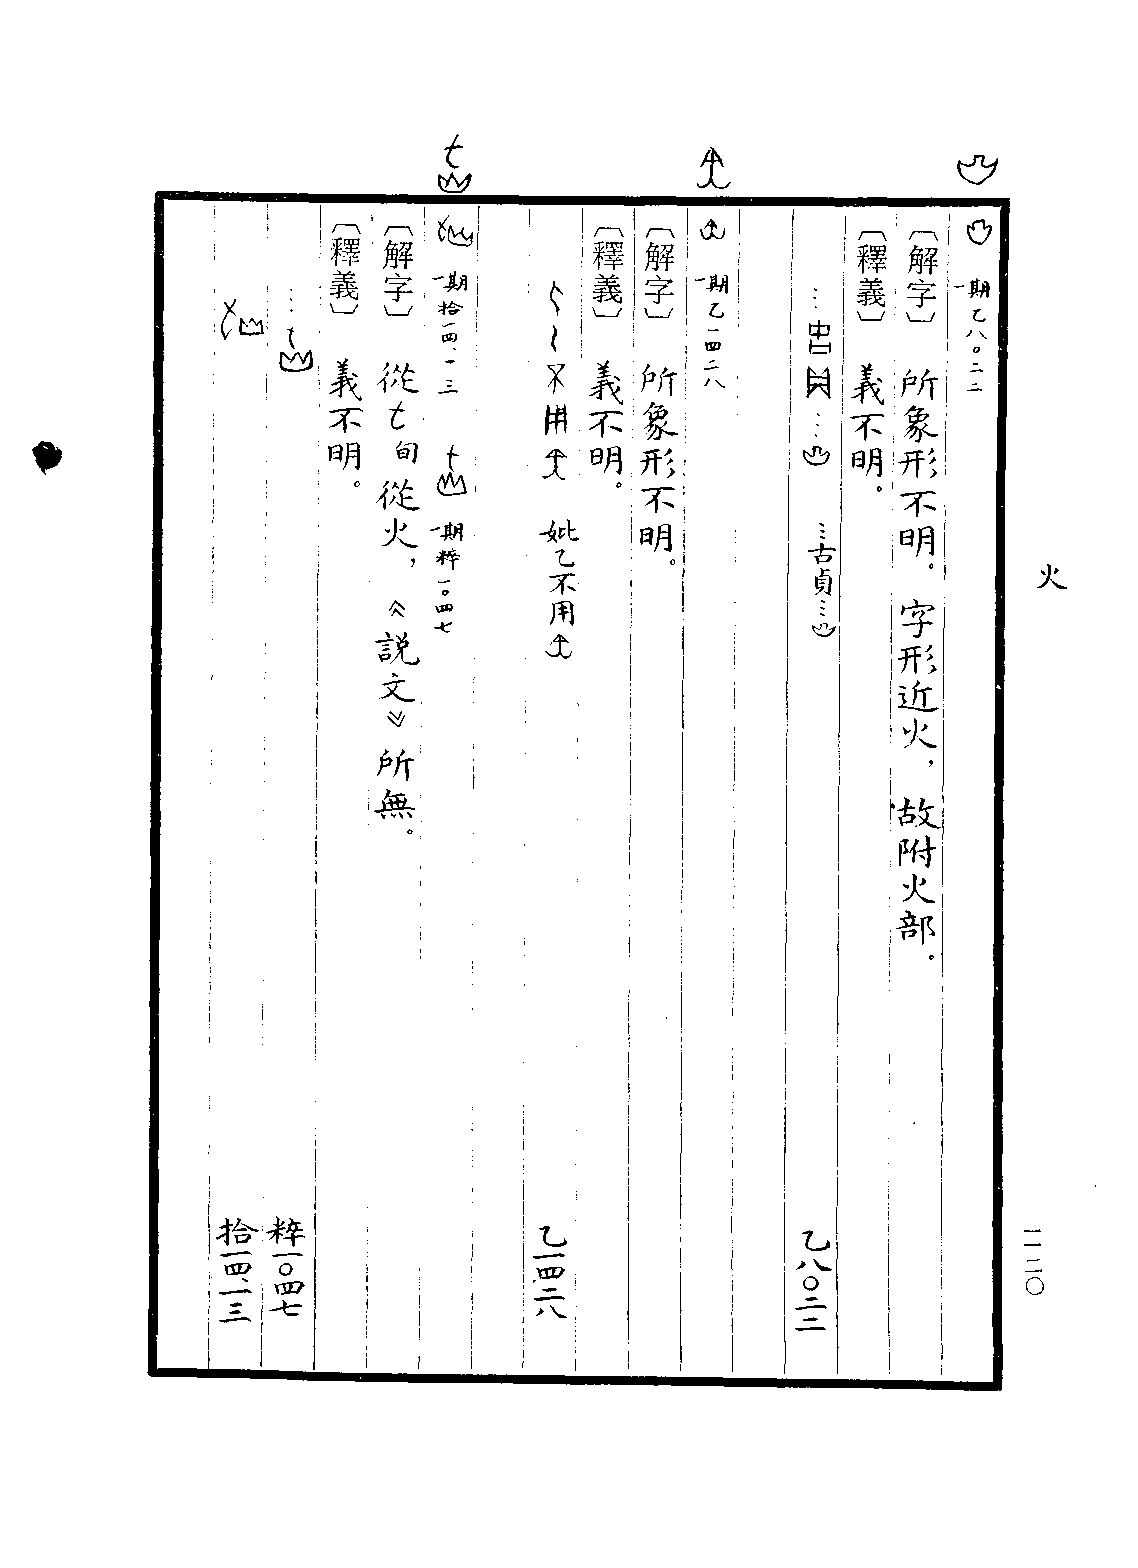 火
一一二〇
一期 乙八〇二二
〔解字〕 所象形不明。字形近火，故附火部。
〔釋義〕 義不明。
…古貞… 乙八〇二二
一期 乙一四二八
〔解字〕 所象形不明。
〔釋義〕 義不明。
妣乙不用 乙一四二八
一期 拾一四.一三 一期 粹一〇四七
〔解字〕 從 旬從火，《説文》所無。
〔釋義〕 義不明。
… 粹一〇四七
拾一四.一三